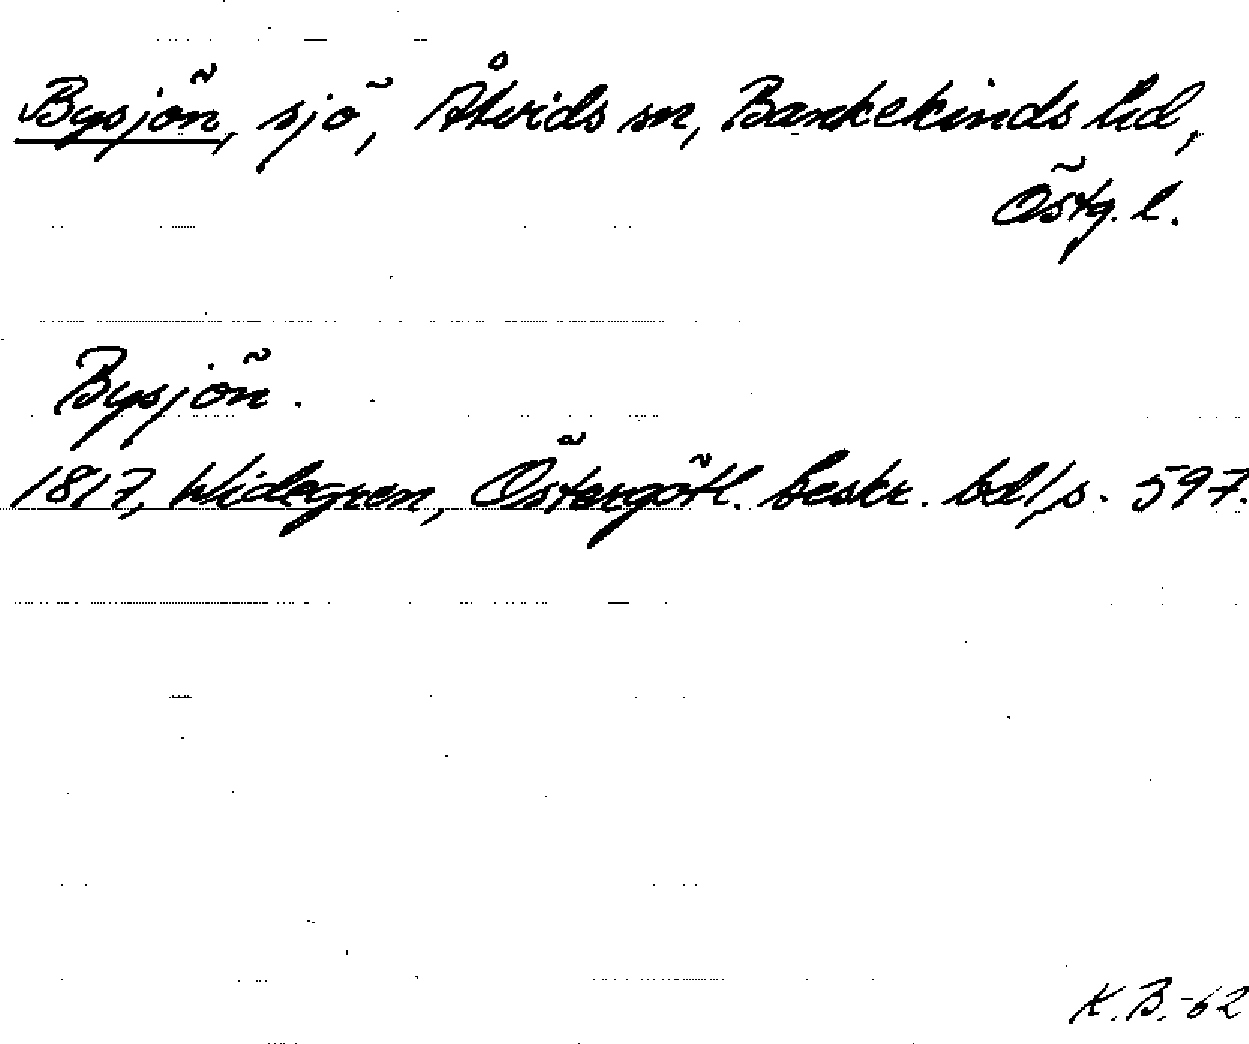 Bysjön, sjö, Åtvids sn, Bankekinds hd,
Östg. l.
Bysjön.
1817, Widegren, Östergötl. beskr. bd 1, s. 597.
K.B.-62